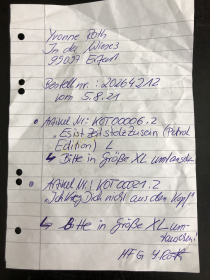 Yvonne Roth
In da Wieses
99097 Erfurt
Bestellnr.: 20264212
vom 5.8.21
Artikel Nr: KOT00006.2
"Es ist Zeit stolz zu sein (Petrol
Edition) L
↳ Bitte in Größe XL umtauschen
Artikel Nr: KOT00021.2
"Ich krieg Dich nicht aus dem Kopf"
↳ Bitte in Größe XL um-
tauschen!
MFG Y. Roth